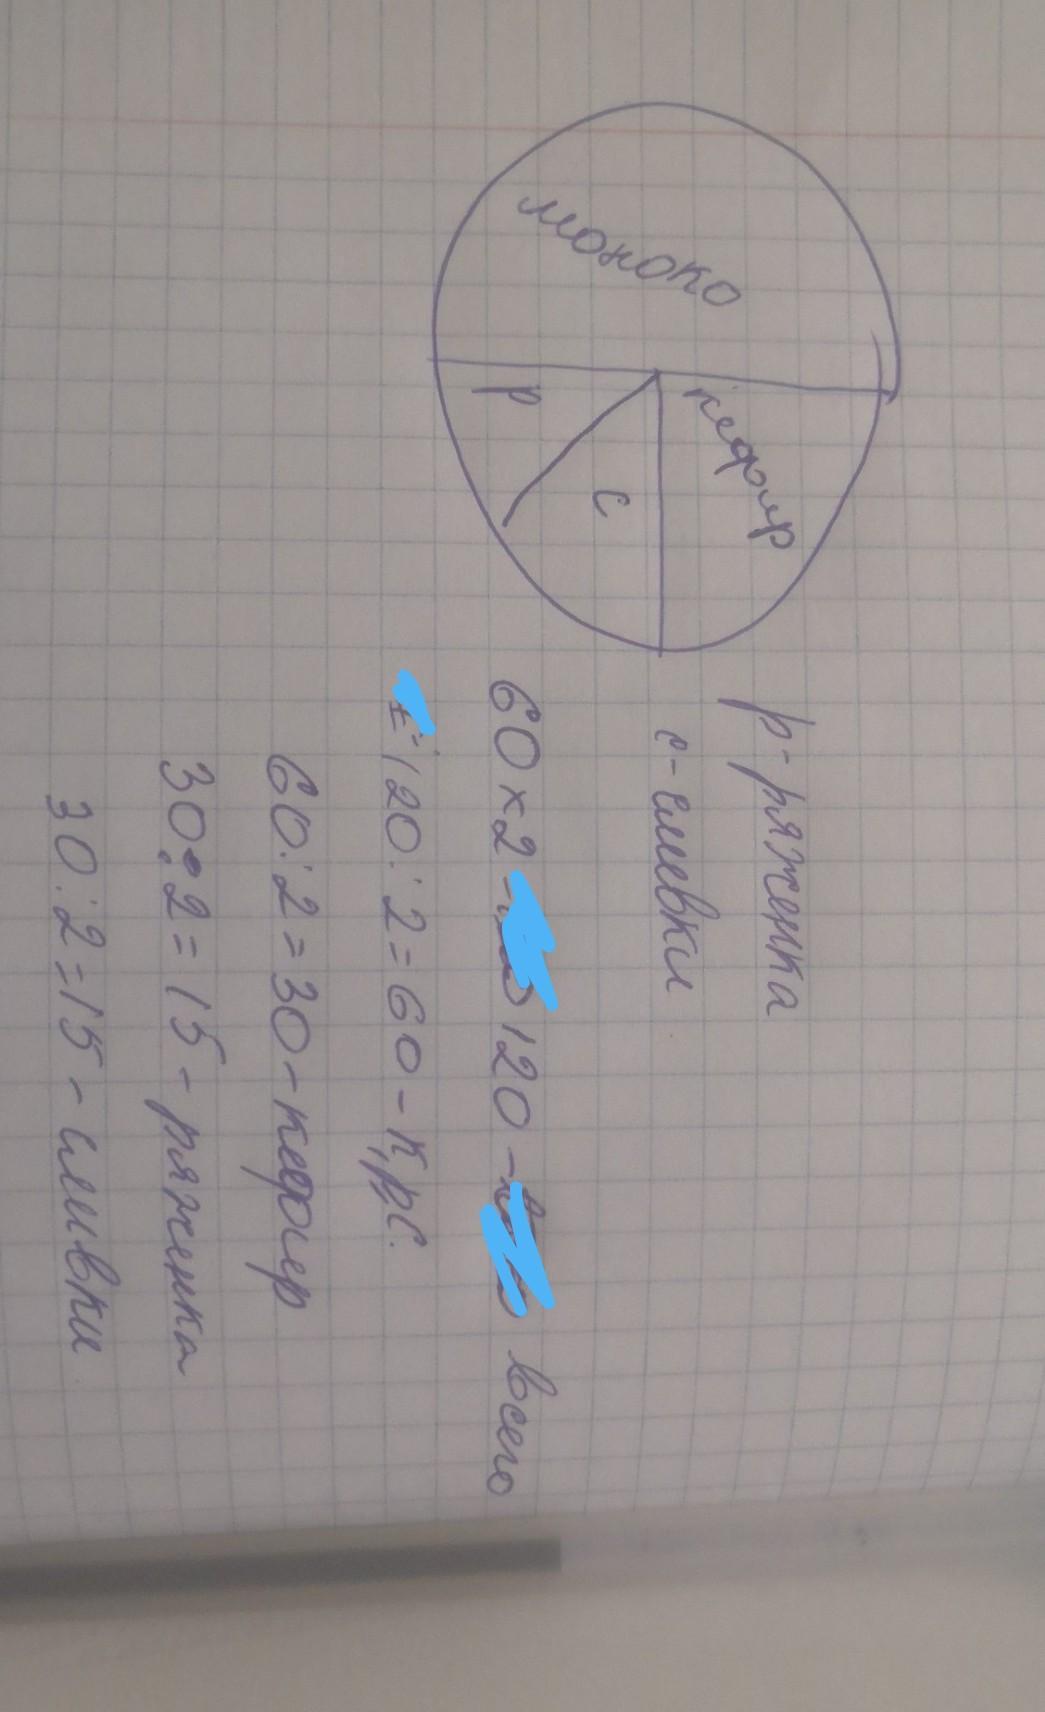 моноко
кефир
р
с
р-ряженка
с-сливки
60x2 120- всего
120:2=60-К,рс.
60:2=30-кефир
30:2=15-ряженка
30:2=15-сливки